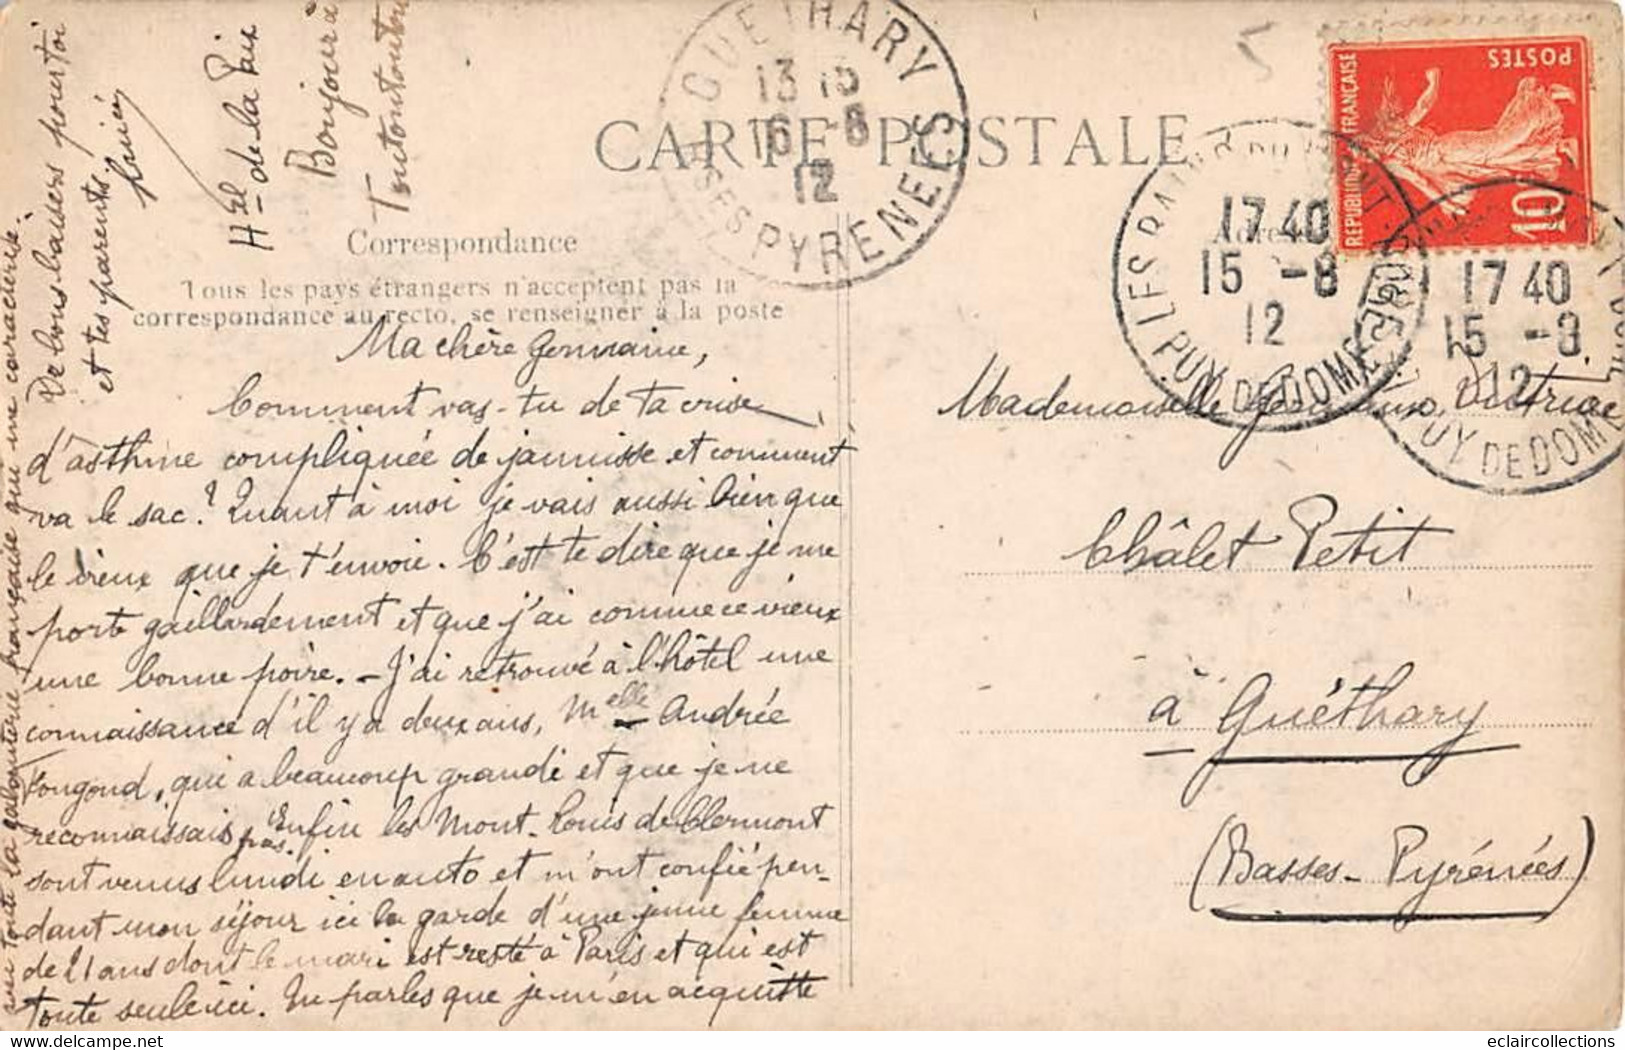 CARTE POSTALE
Correspondance
Tous les pays étrangers n'acceptent pas la
correspondance au recto, se renseigner à la poste
Ma chère Germaine,
Comment vas-tu de ta crise
d'asthme compliquée de jaunisse et comment
va le sac? Quant à moi je vais aussi bien que
le vieux que je t'envoie. C'est te dire que je me
porte gaillardement et que j'ai comme ce vieux
une bonne poire. - J'ai retrouvé à l'hôtel une
connaissance d'il y a deux ans, Melle Andrée
Fongond, qui a beaucoup grandi et que je ne
reconnaissais pas. Enfin les Mont-Louis de Clermont
sont venus lundi en auto et m'ont confié pen-
dant mon séjour ici la garde d'une jeune femme
de 21 ans dont le mari est resté à Paris et qui est
toute seule ici. Tu parles que je m'en acquitte
avec toute la galanterie française qui me caractérise.
De bons baisers pour toi
et tes parents.
Hel de la Paix
Bonjour à
Toutoutou
GUETHARY
13 15
16 - 8
12
BSES PYRENEES
Adresse
17 40
15 - 8
12
PUY DE DOME
17 40
15 - 8
12
PUY DE DOME
POSTES
REPUBLIQUE FRANÇAISE
10
Mademoiselle Germaine
Châlet Petit
à Guéthary
(Basses-Pyrénées)
eclaircollections